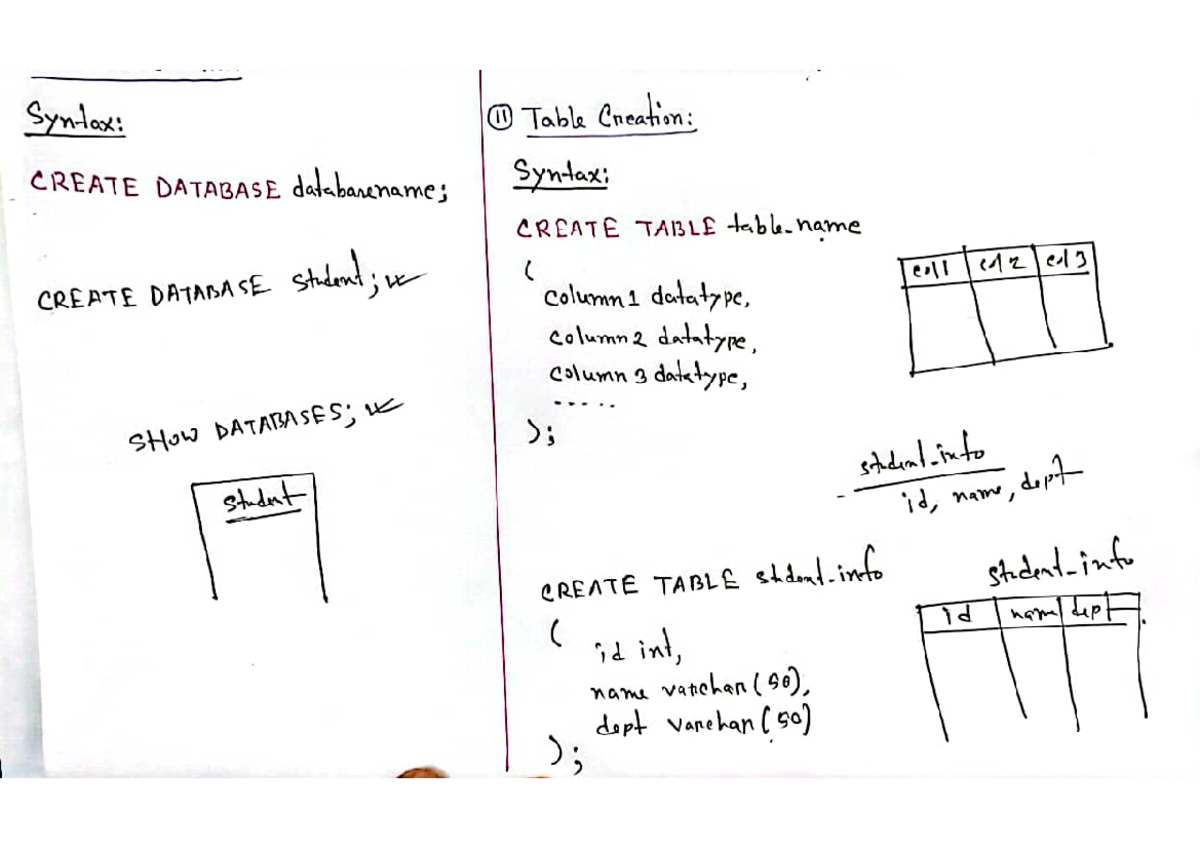 Syntax:
CREATE DATABASE databasename;
CREATE DATABASE student;
SHOW DATABASES;
student
(11) Table Creation:
Syntax:
CREATE TABLE table_name
(
column1 datatype,
column2 datatype,
column3 datatype,
.....
);
col1 col2 col3
student_info
id, name, dept
CREATE TABLE student_info
(
id int,
name varchar(50),
dept varchar(50)
);
student_info
id name dept